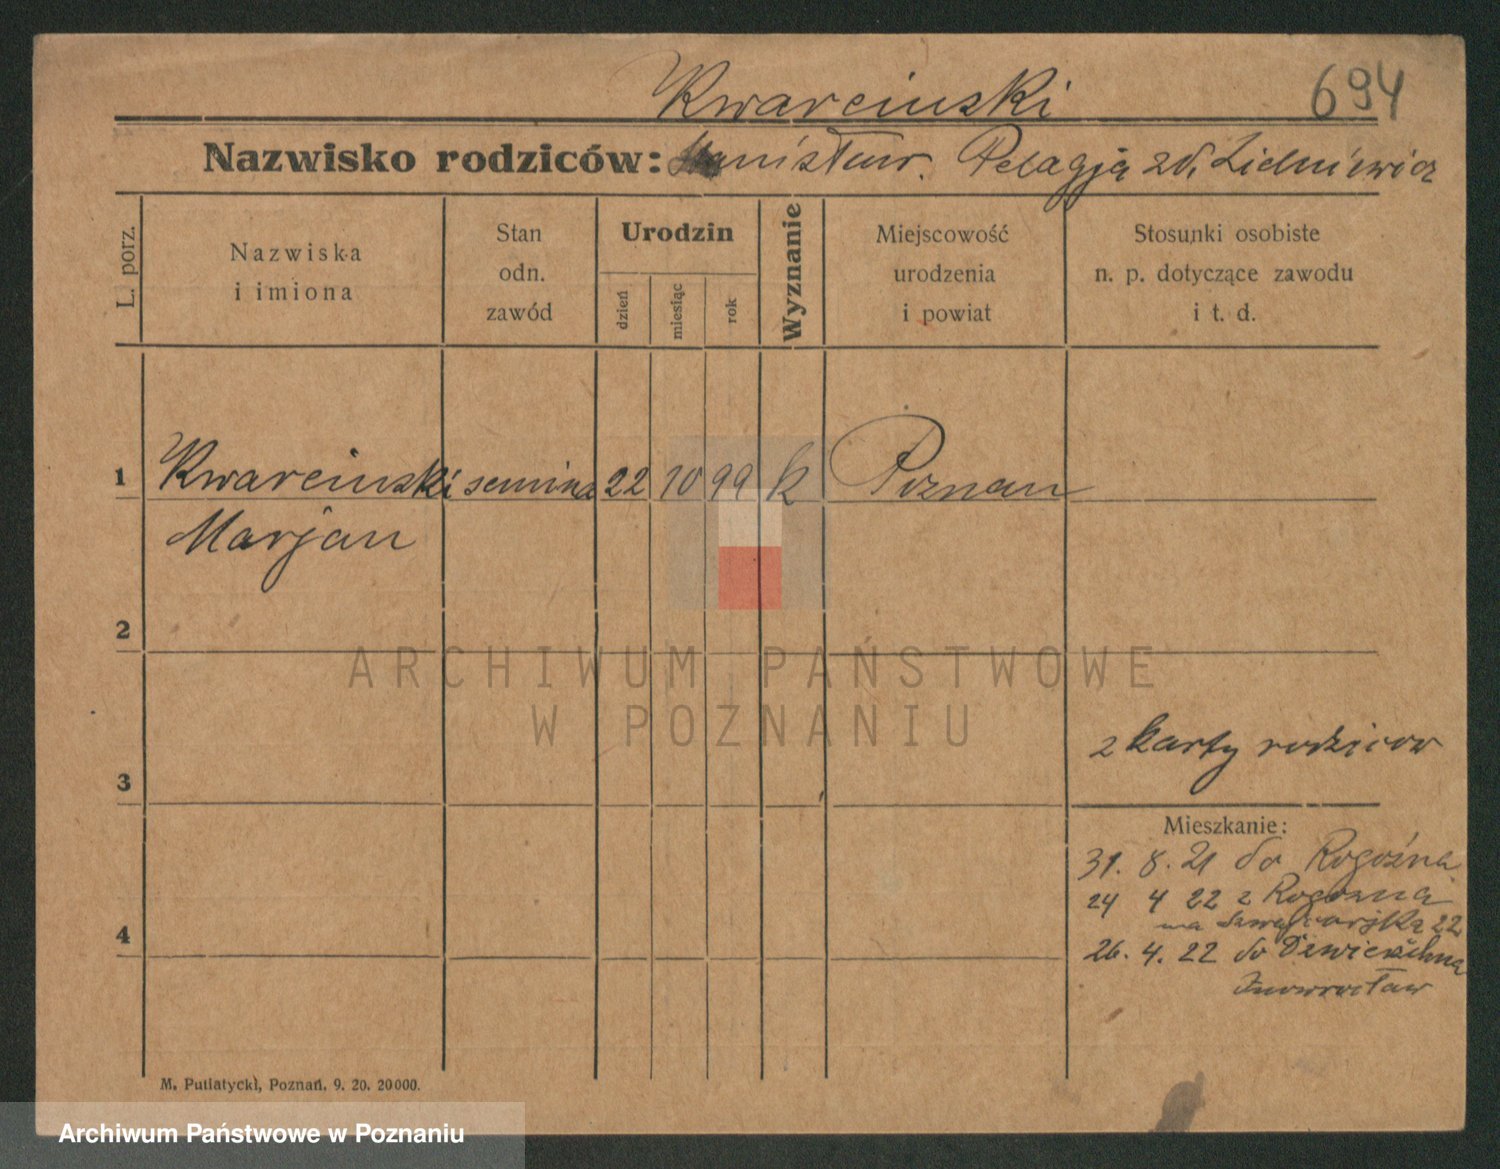 Kwarciński 694
Nazwisko rodziców: Stanisław. Pelagja zd. Zielniewicz
L. porz.
Nazwiska
i imiona
Stan
odn.
zawód
Urodzin
dzień
miesiąc
rok
Wyznanie
Miejscowość
urodzenia
i powiat
Stosunki osobiste
n. p. dotyczące zawodu
i t. d.
1 Kwarcinski semina 22 10 99 k Poznan
Marjan
2
ARCHIWUM PAŃSTWOWE
W POZNANIU
z karty rodzicow
3
Mieszkanie:
31. 8. 21 do Rogoźna
24 4 22 z Rogozna
na 22
4
26. 4. 22 do
Inowrocław
M. Putiatycki, Poznań, 9. 20. 20000.
Archiwum Państwowe w Poznaniu